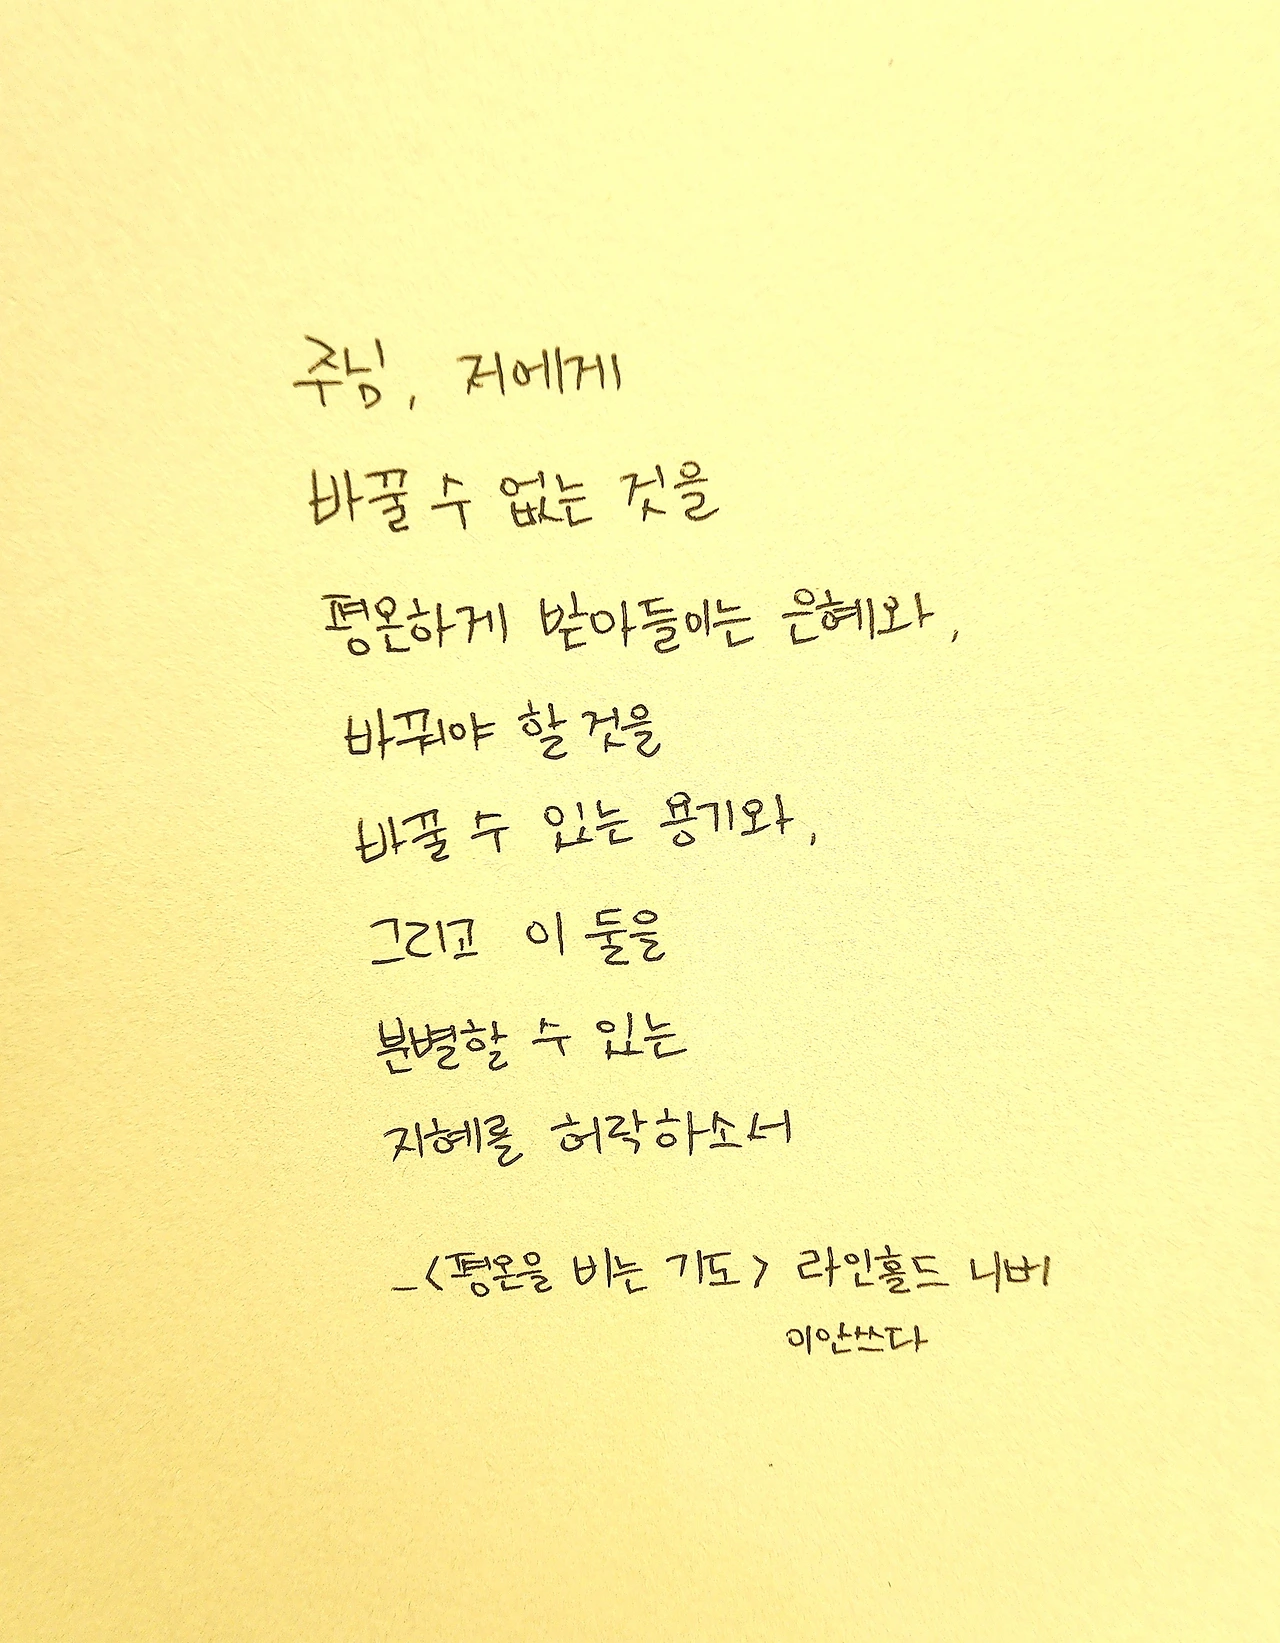 주님, 저에게
바꿀 수 없는 것을
평온하게 받아들이는 은혜와,
바꿔야 할 것을
바꿀 수 있는 용기와,
그리고 이 둘을
분별할 수 있는
지혜를 허락하소서
_<평온을 비는 기도> 라인홀드 니버
이안쓰다